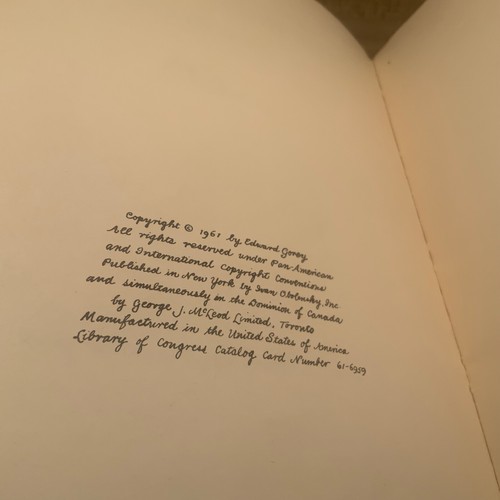 Copyright © 1961 by Edward Gorey
All rights reserved under Pan American
and International Copyright Conventions
Published in New York by Ivan Obolensky, Inc
and simultaneously in the Dominion of Canada
by George J. McLeod Limited, Toronto
Manufactured in the United States of America
Library of Congress Catalog Card Number 61-5959